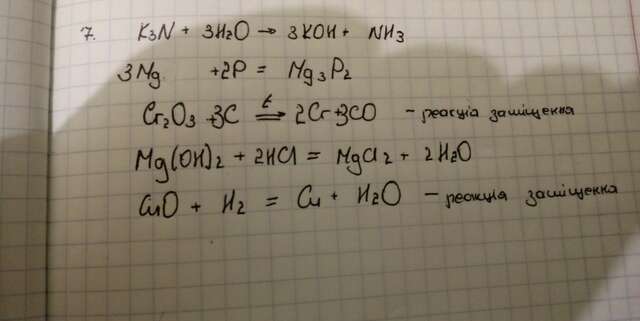 7. K3N + 3H2O → 3KOH + NH3
3Mg +2P = Mg3P2
Cr2O3 +3C t = 2Cr+3CO - реакція заміщення
Mg(OH)2 + 2HCl = MgCl2 + 2H2O
CuO + H2 = Cu + H2O - реакція заміщення